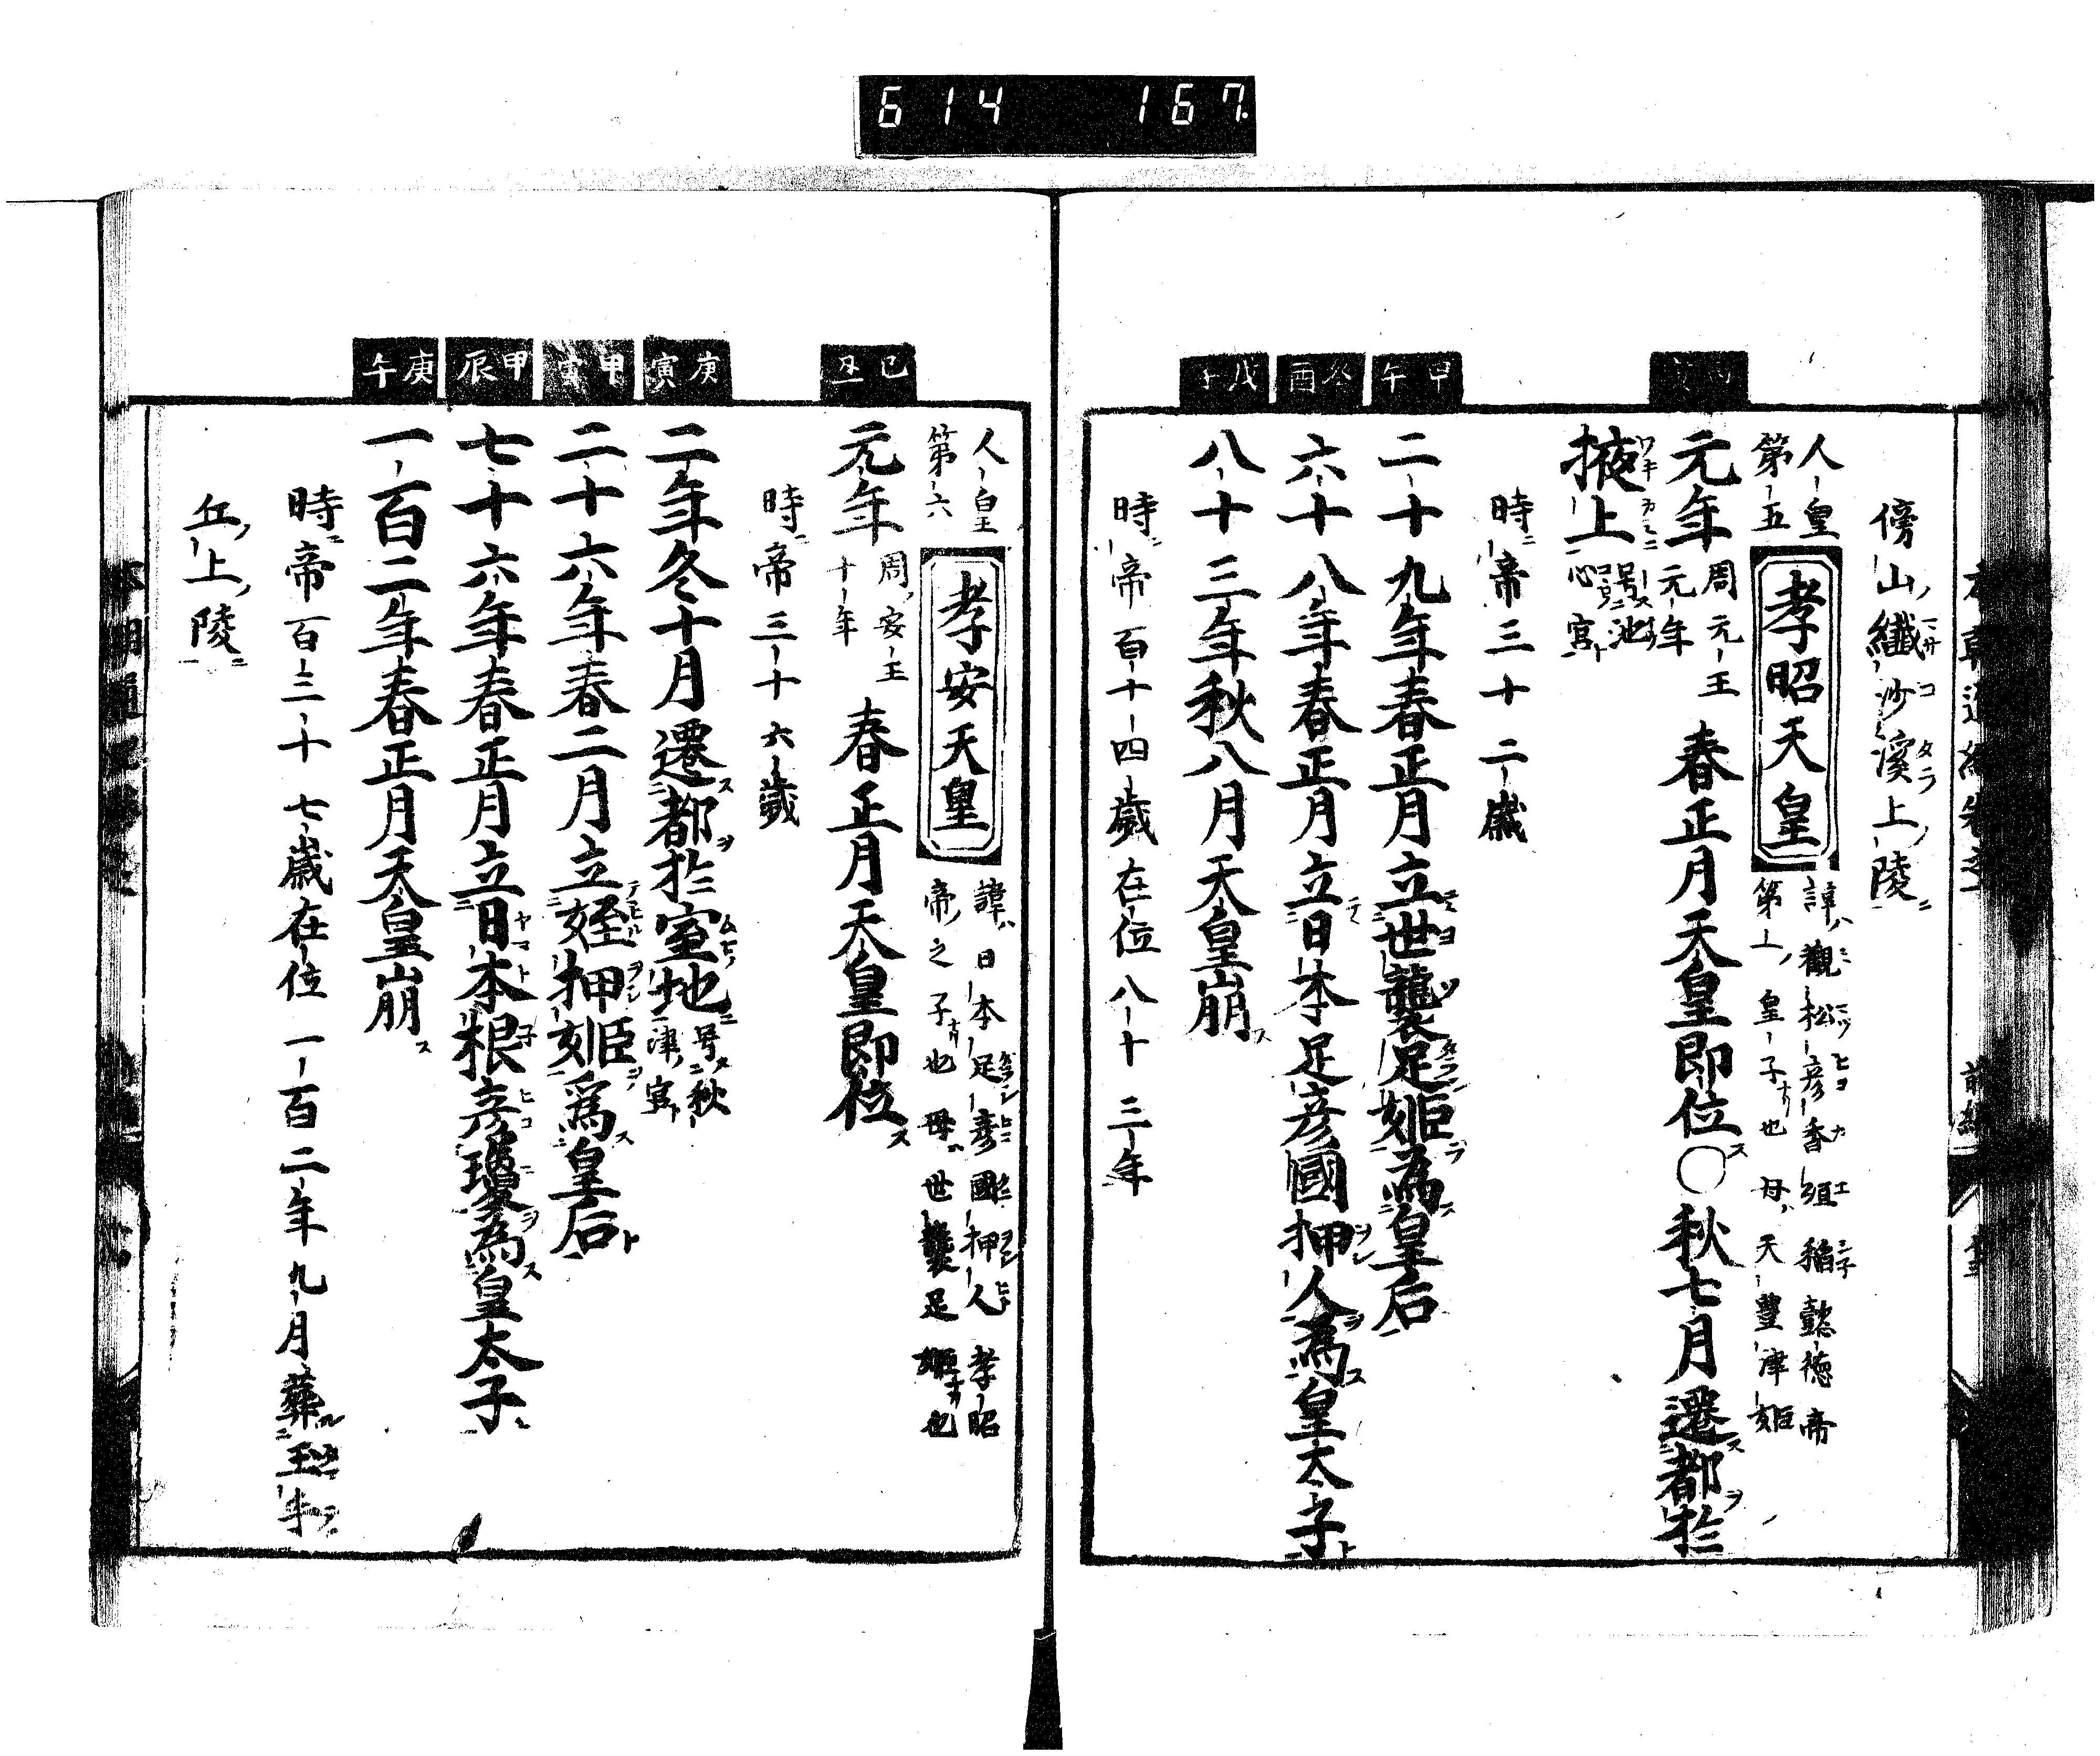 614 167
傍山纖沙溪上陵
人皇
第五
孝昭天皇
諱觀松彦香殖稲懿徳帝
第一皇子也母天豐津姫
元年
周元王
元年
春正月天皇即位○秋七月遷都於
掖上
号池
心宮
時帝三十二歳
甲午
二十九年春正月立世襲足姫為皇后
癸酉
六十八年春正月立日本足彦國押人為皇太子
戊子
八十三年秋八月天皇崩
時帝百十四歲在位八十三年
人皇
第六
孝安天皇
諱日本足彦國押人孝昭
帝之子也母世襲足姫也
己丑
元年
周安王
十年
春正月天皇即位
時帝三十六歲
庚寅
二年冬十月遷都於室地
号秋
津宮
甲寅
二十六年春二月立姪押姫爲皇后
甲辰
七十六年春正月立日本根彦瓊為皇太子
庚午
一百二年春正月天皇崩
時帝百三十七歳在位一百二年九月葬玉手
丘上陵